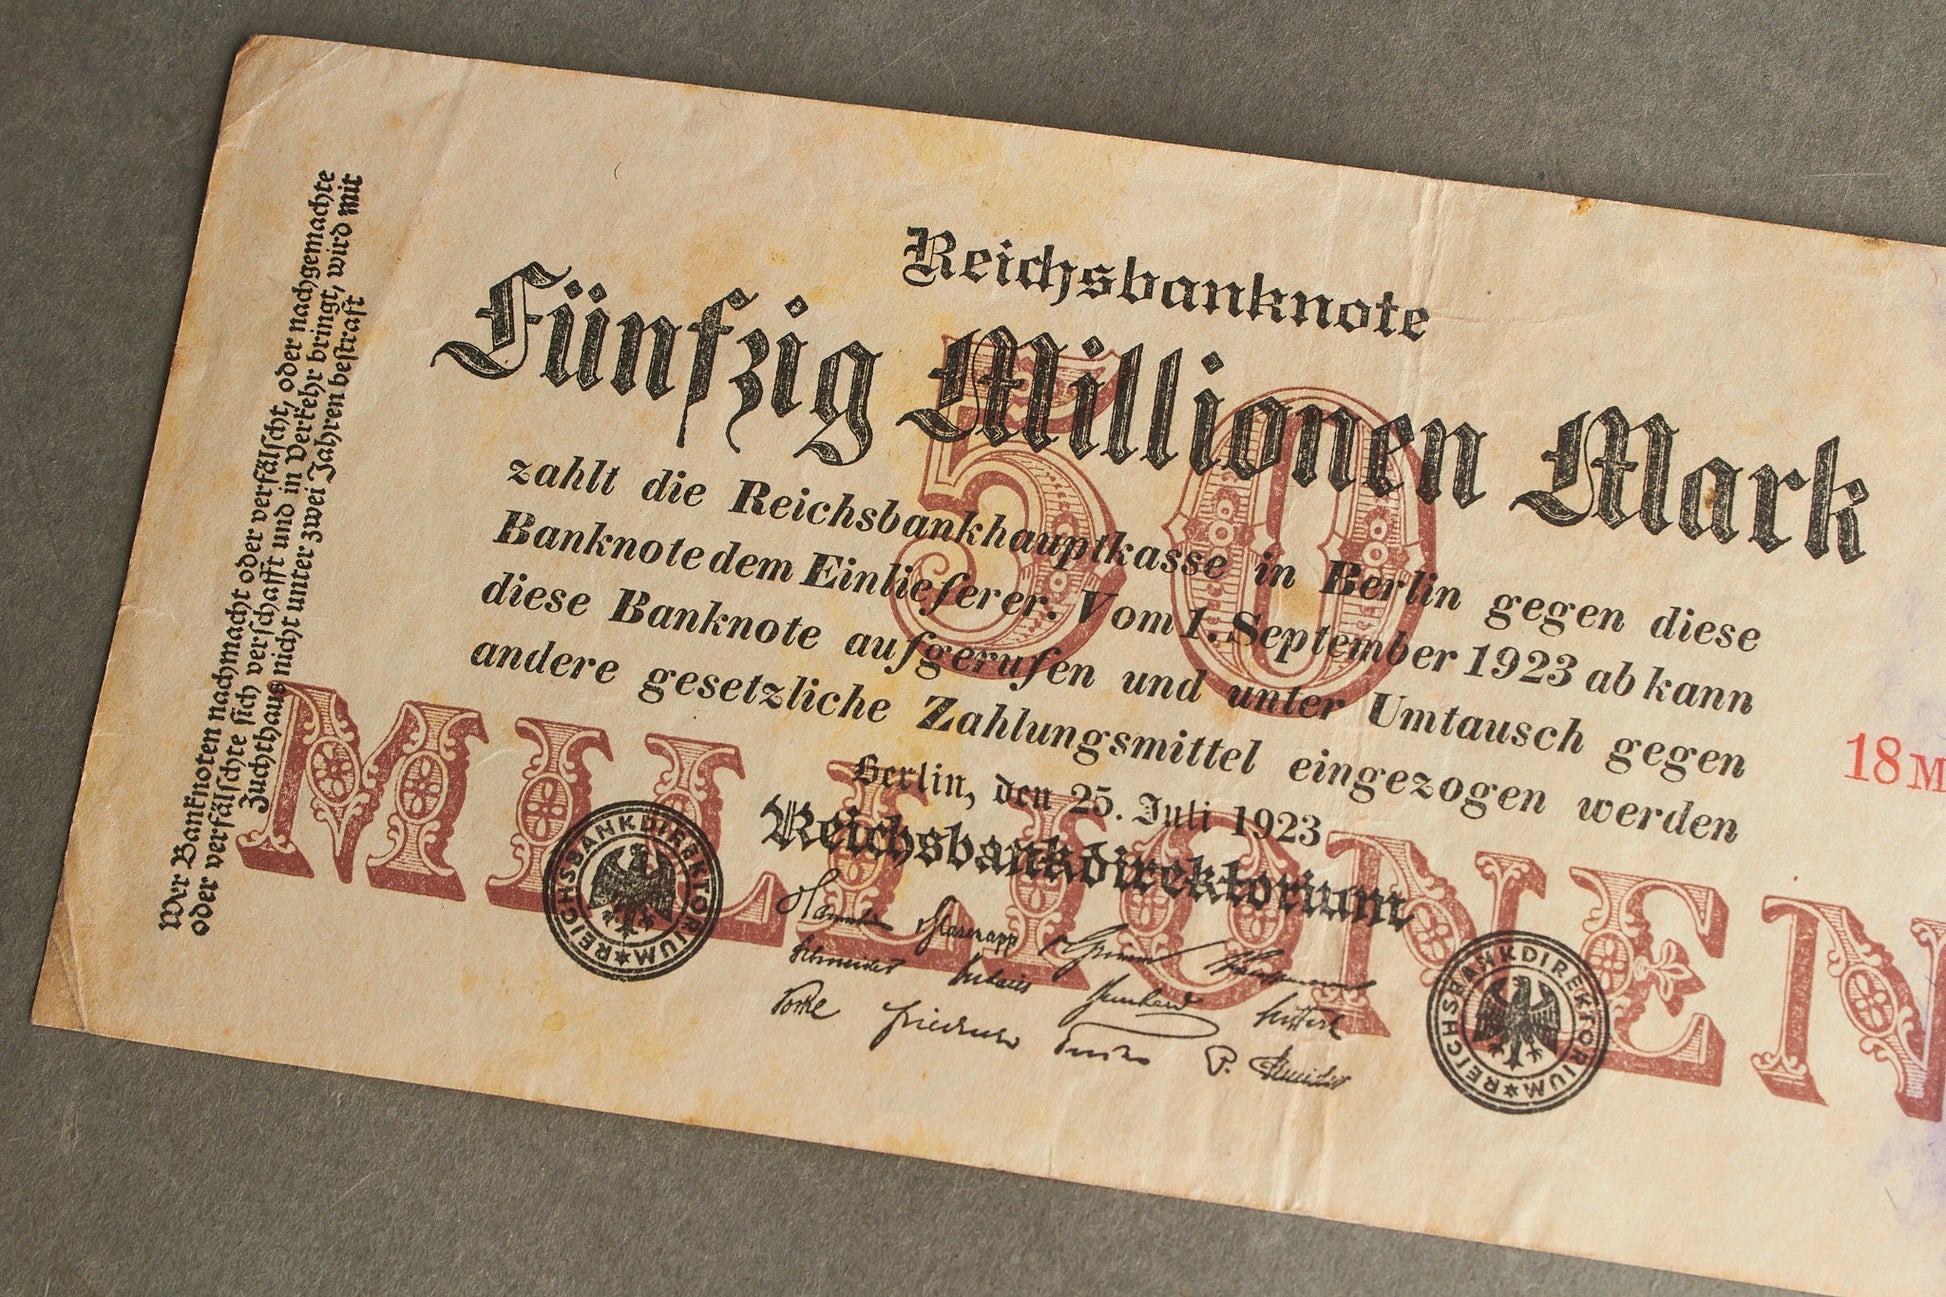 Reichsbanknote
Fünfzig Millionen Mark
50
zahlt die Reichsbankhauptkasse in Berlin gegen diese
Banknote dem Einlieferer. Vom 1. September 1923 ab kann
diese Banknote aufgerufen und unter Umtausch gegen
andere gesetzliche Zahlungsmittel eingezogen werden
Berlin, den 25. Juli 1923
Reichsbankdirektorium
MILLIONEN
REICHSBANKDIREKTORIUM
REICHSBANKDIREKTORIUM
v. Glasenapp
v. Grimm
Schneider
Vocke
Friedrich
P. Schneider
18M
Wer Banknoten nachmacht oder verfälscht, oder nachgemachte
oder verfälschte sich verschafft und in Verkehr bringt, wird mit
Zuchthaus nicht unter zwei Jahren bestraft